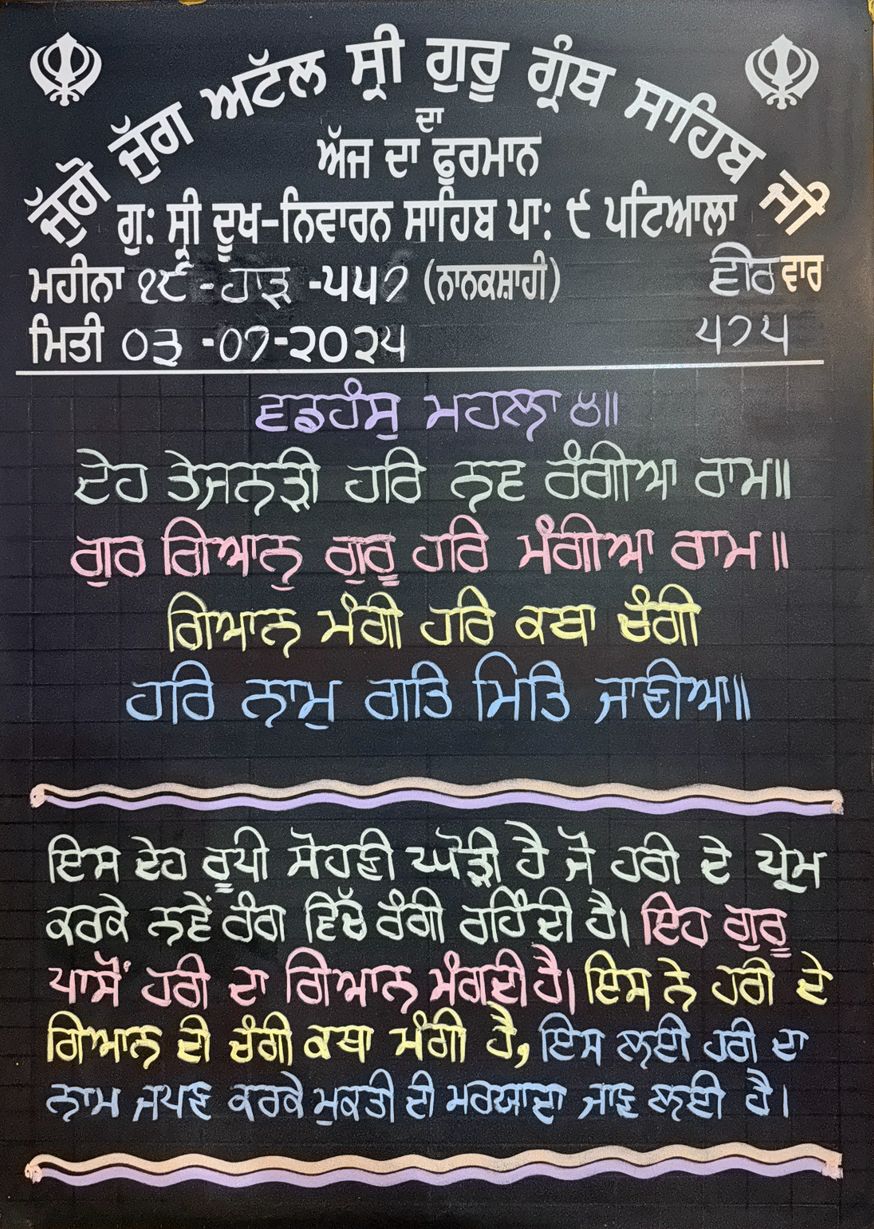 ਜੁੱਗੋ ਜੁੱਗ ਅਟੱਲ ਸ੍ਰੀ ਗੁਰੂ ਗ੍ਰੰਥ ਸਾਹਿਬ ਜੀ
ਦਾ
ਅੱਜ ਦਾ ਫੁਰਮਾਨ
ਗੁ: ਸ੍ਰੀ ਦੂਖ-ਨਿਵਾਰਨ ਸਾਹਿਬ ਪਾ: ੯ ਪਟਿਆਲਾ
ਮਹੀਨਾ ੧੯-ਹਾੜ -੫੫੭ (ਨਾਨਕਸ਼ਾਹੀ) ਵੀਰ ਵਾਰ
ਮਿਤੀ ੦੩ -੦੭-੨੦੨੫ ੫੭੫
ਵਡਹੰਸੁ ਮਹਲਾ ੪॥
ਦੇਹ ਤੇਜਨੜੀ ਹਰਿ ਨਵ ਰੰਗੀਆ ਰਾਮ॥
ਗੁਰ ਗਿਆਨੁ ਗੁਰੂ ਹਰਿ ਮੰਗੀਆ ਰਾਮ॥
ਗਿਆਨ ਮੰਗੀ ਹਰਿ ਕਥਾ ਚੰਗੀ
ਹਰਿ ਨਾਮੁ ਗਤਿ ਮਿਤਿ ਜਾਣੀਆ॥
ਇਸ ਦੇਹ ਰੂਪੀ ਸੋਹਣੀ ਘੋੜੀ ਹੈ ਜੋ ਹਰੀ ਦੇ ਪ੍ਰੇਮ
ਕਰਕੇ ਨਵੇਂ ਰੰਗ ਵਿੱਚ ਰੰਗੀ ਰਹਿੰਦੀ ਹੈ। ਇਹ ਗੁਰੂ
ਪਾਸੋਂ ਹਰੀ ਦਾ ਗਿਆਨ ਮੰਗਦੀ ਹੈ। ਇਸ ਨੇ ਹਰੀ ਦੇ
ਗਿਆਨ ਦੀ ਚੰਗੀ ਕਥਾ ਮੰਗੀ ਹੈ, ਇਸ ਲਈ ਹਰੀ ਦਾ
ਨਾਮ ਜਪਣ ਕਰਕੇ ਮੁਕਤੀ ਦੀ ਮਰਯਾਦਾ ਜਾਣ ਲਈ ਹੈ।